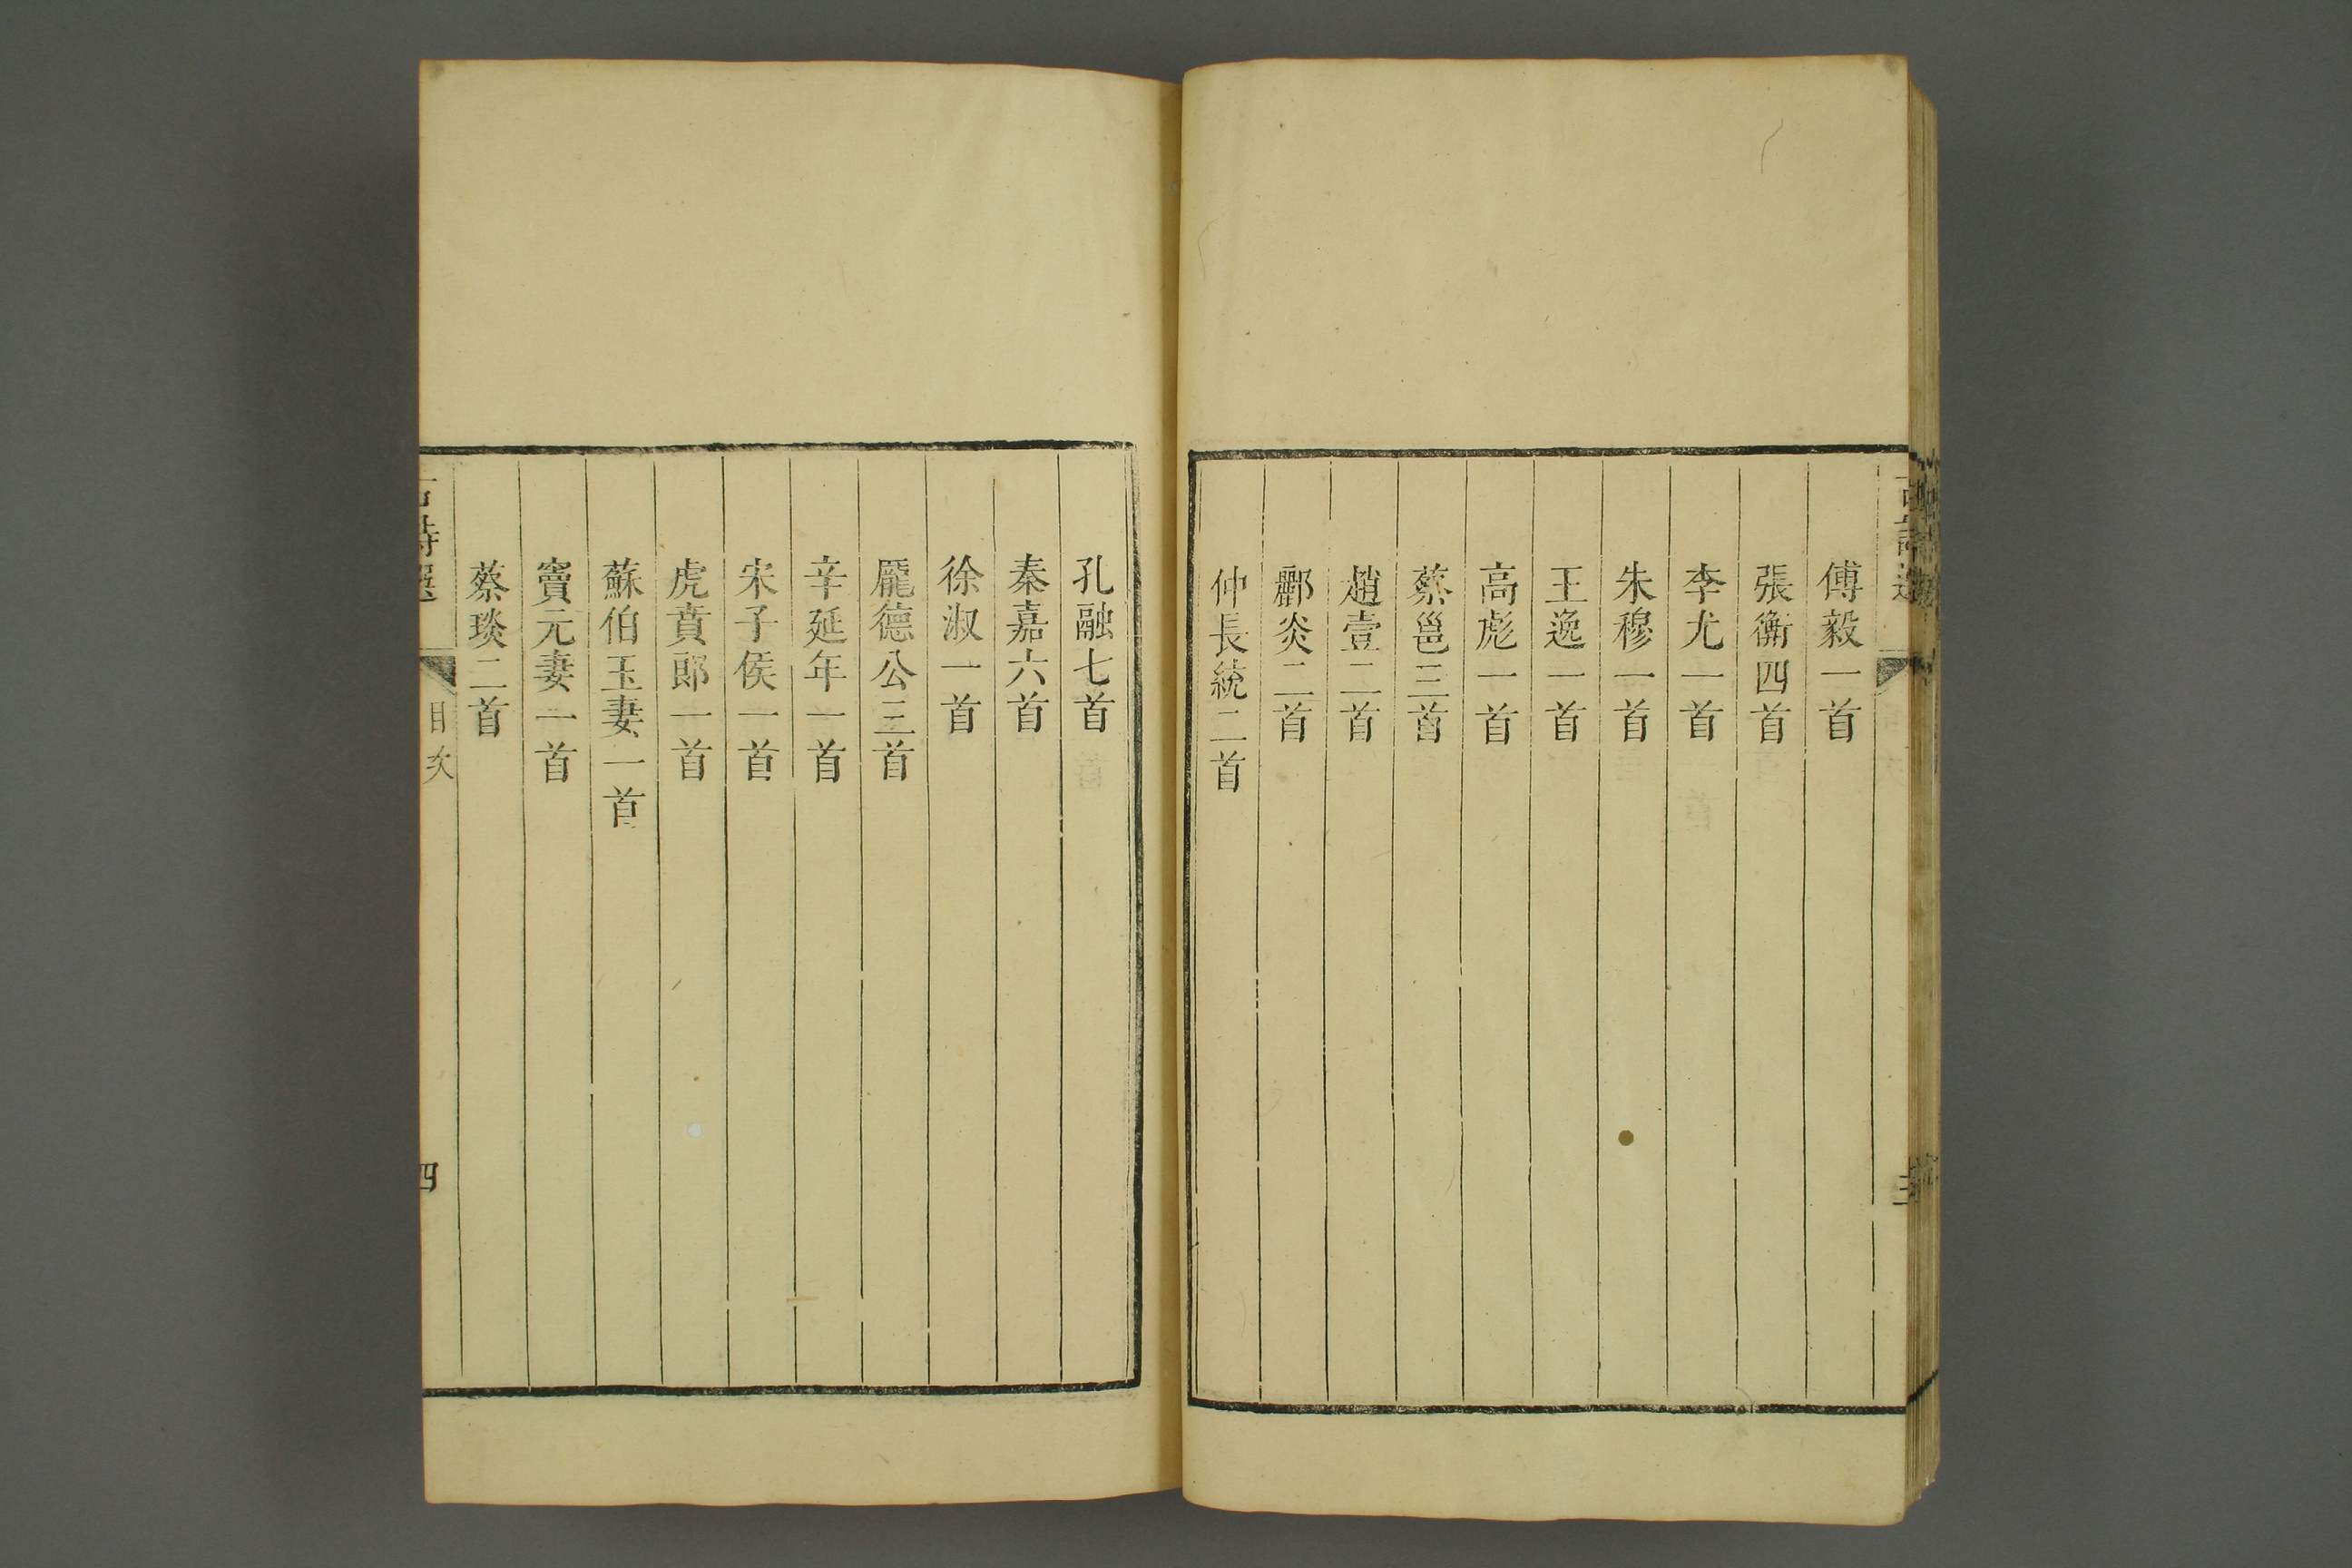 傅毅一首
張衡四首
李尤一首
朱穆一首
王逸一首
高彪一首
蔡邕三首
趙壹二首
酈炎二首
仲長統二首
孔融七首
秦嘉六首
徐淑一首
龐德公三首
辛延年一首
宋子侯一首
虎賁郎一首
蘇伯玉妻一首
竇元妻一首
蔡琰二首
古詩選
目次
四